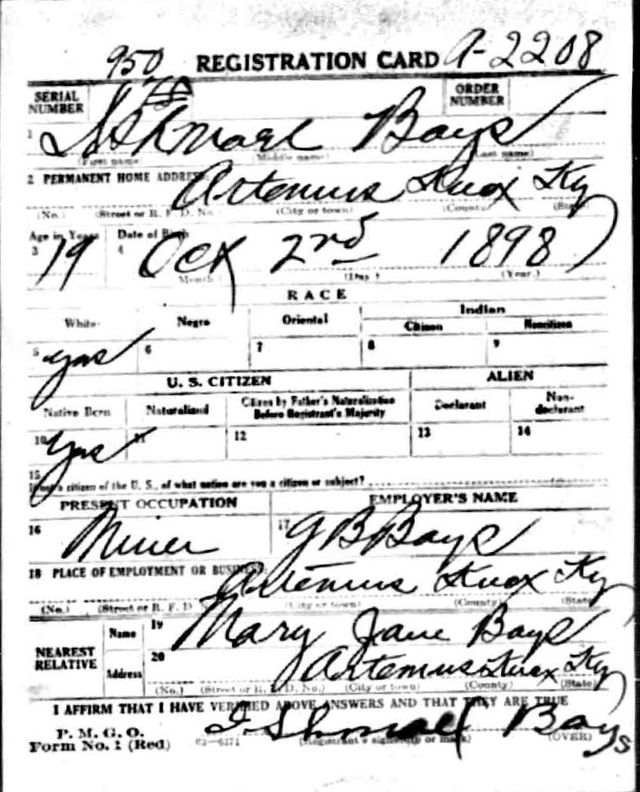 950 REGISTRATION CARD A-2208
SERIAL NUMBER ORDER NUMBER
1 Ishmael Bays
(First name) (Middle name) (Last name)
2 PERMANENT HOME ADDRESS Artemus Knox Ky
(No.) (Street or R. F. D. No.) (City or town) (County) (State)
Age in Years Date of Birth
3 19 4 Oct 2nd 1898
Month (Day) (Year.)
RACE
White Negro Oriental Indian
Citizen Noncitizen
5 yes 6 7 8 9
U. S. CITIZEN ALIEN
Native Born Naturalized Citizen by Father's Naturalization Before Registrant's Majority Declarant Non-declarant
10 yes 11 12 13 14
15
If not a citizen of the U. S., of what nation are you a citizen or subject?
PRESENT OCCUPATION EMPLOYER'S NAME
16 Miner 17 G B Bays
18 PLACE OF EMPLOYMENT OR BUSINESS Artemus Knox Ky
(No.) (Street or R. F. D. No.) (City or town) (County) (State)
NEAREST RELATIVE Name 19 Mary Jane Bays
Address 20 Artemus Knox Ky
(No.) (Street or R. F. D. No.) (City or town) (County) (State)
I AFFIRM THAT I HAVE VERIFIED ABOVE ANSWERS AND THAT THEY ARE TRUE
P. M. G. O.
Form No. 1 (Red) 03-6171 Ishmael Bays
(Registrant's signature or mark) (OVER)